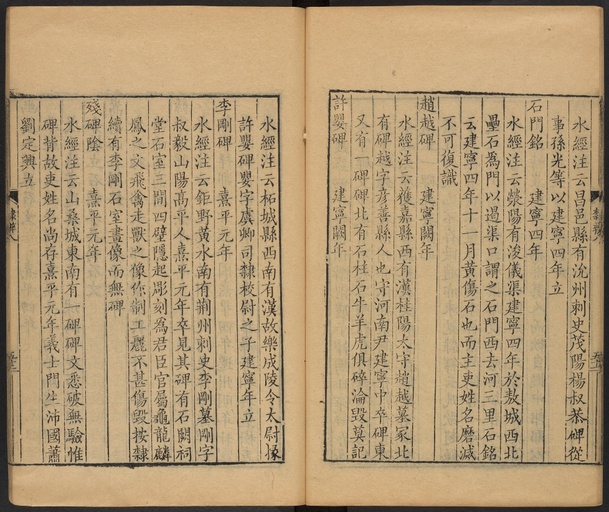 水經注云昌邑縣有沈州刺史茂陽楊叔恭碑從
事孫光等以建寧四年立
石門銘　建寧四年
水經注云滎陽有浚儀渠建寧四年於敖城西北
壘石為門以遏渠口謂之石門西去河三里石銘
云建寧四年十一月黃傷石也而主吏姓名磨滅
不可復識
趙越碑　建寧闕年
水經注云獲嘉縣西有漢桂陽太守趙越墓冢北
有碑越字彥善縣人也守河南尹建寧中卒碑東
又有一碑碑北有石柱石牛羊虎俱碎淪毀莫記
許嬰碑　建寧闕年
水經注云柘城縣西南有漢故樂成陵令太尉掾
許嬰碑嬰字虞卿司隸校尉之子建寧年立
李剛碑　熹平元年
水經注云鉅野黃水南有荊州刺史李剛墓剛字
叔毅山陽高平人熹平元年卒見其碑有石闕祠
堂石室三間四壁隱起彫刻為君臣官屬龜龍麟
鳳之文飛禽走獸之像作制工麗不甚傷毀按隸
續有李剛石室畫像而無碑
殘碑陰　熹平元年
水經注云山桑城東南有一碑碑文悉破無驗惟
碑背故吏姓名尚存熹平元年義士門生沛國蕭
劉定興立
隸辨